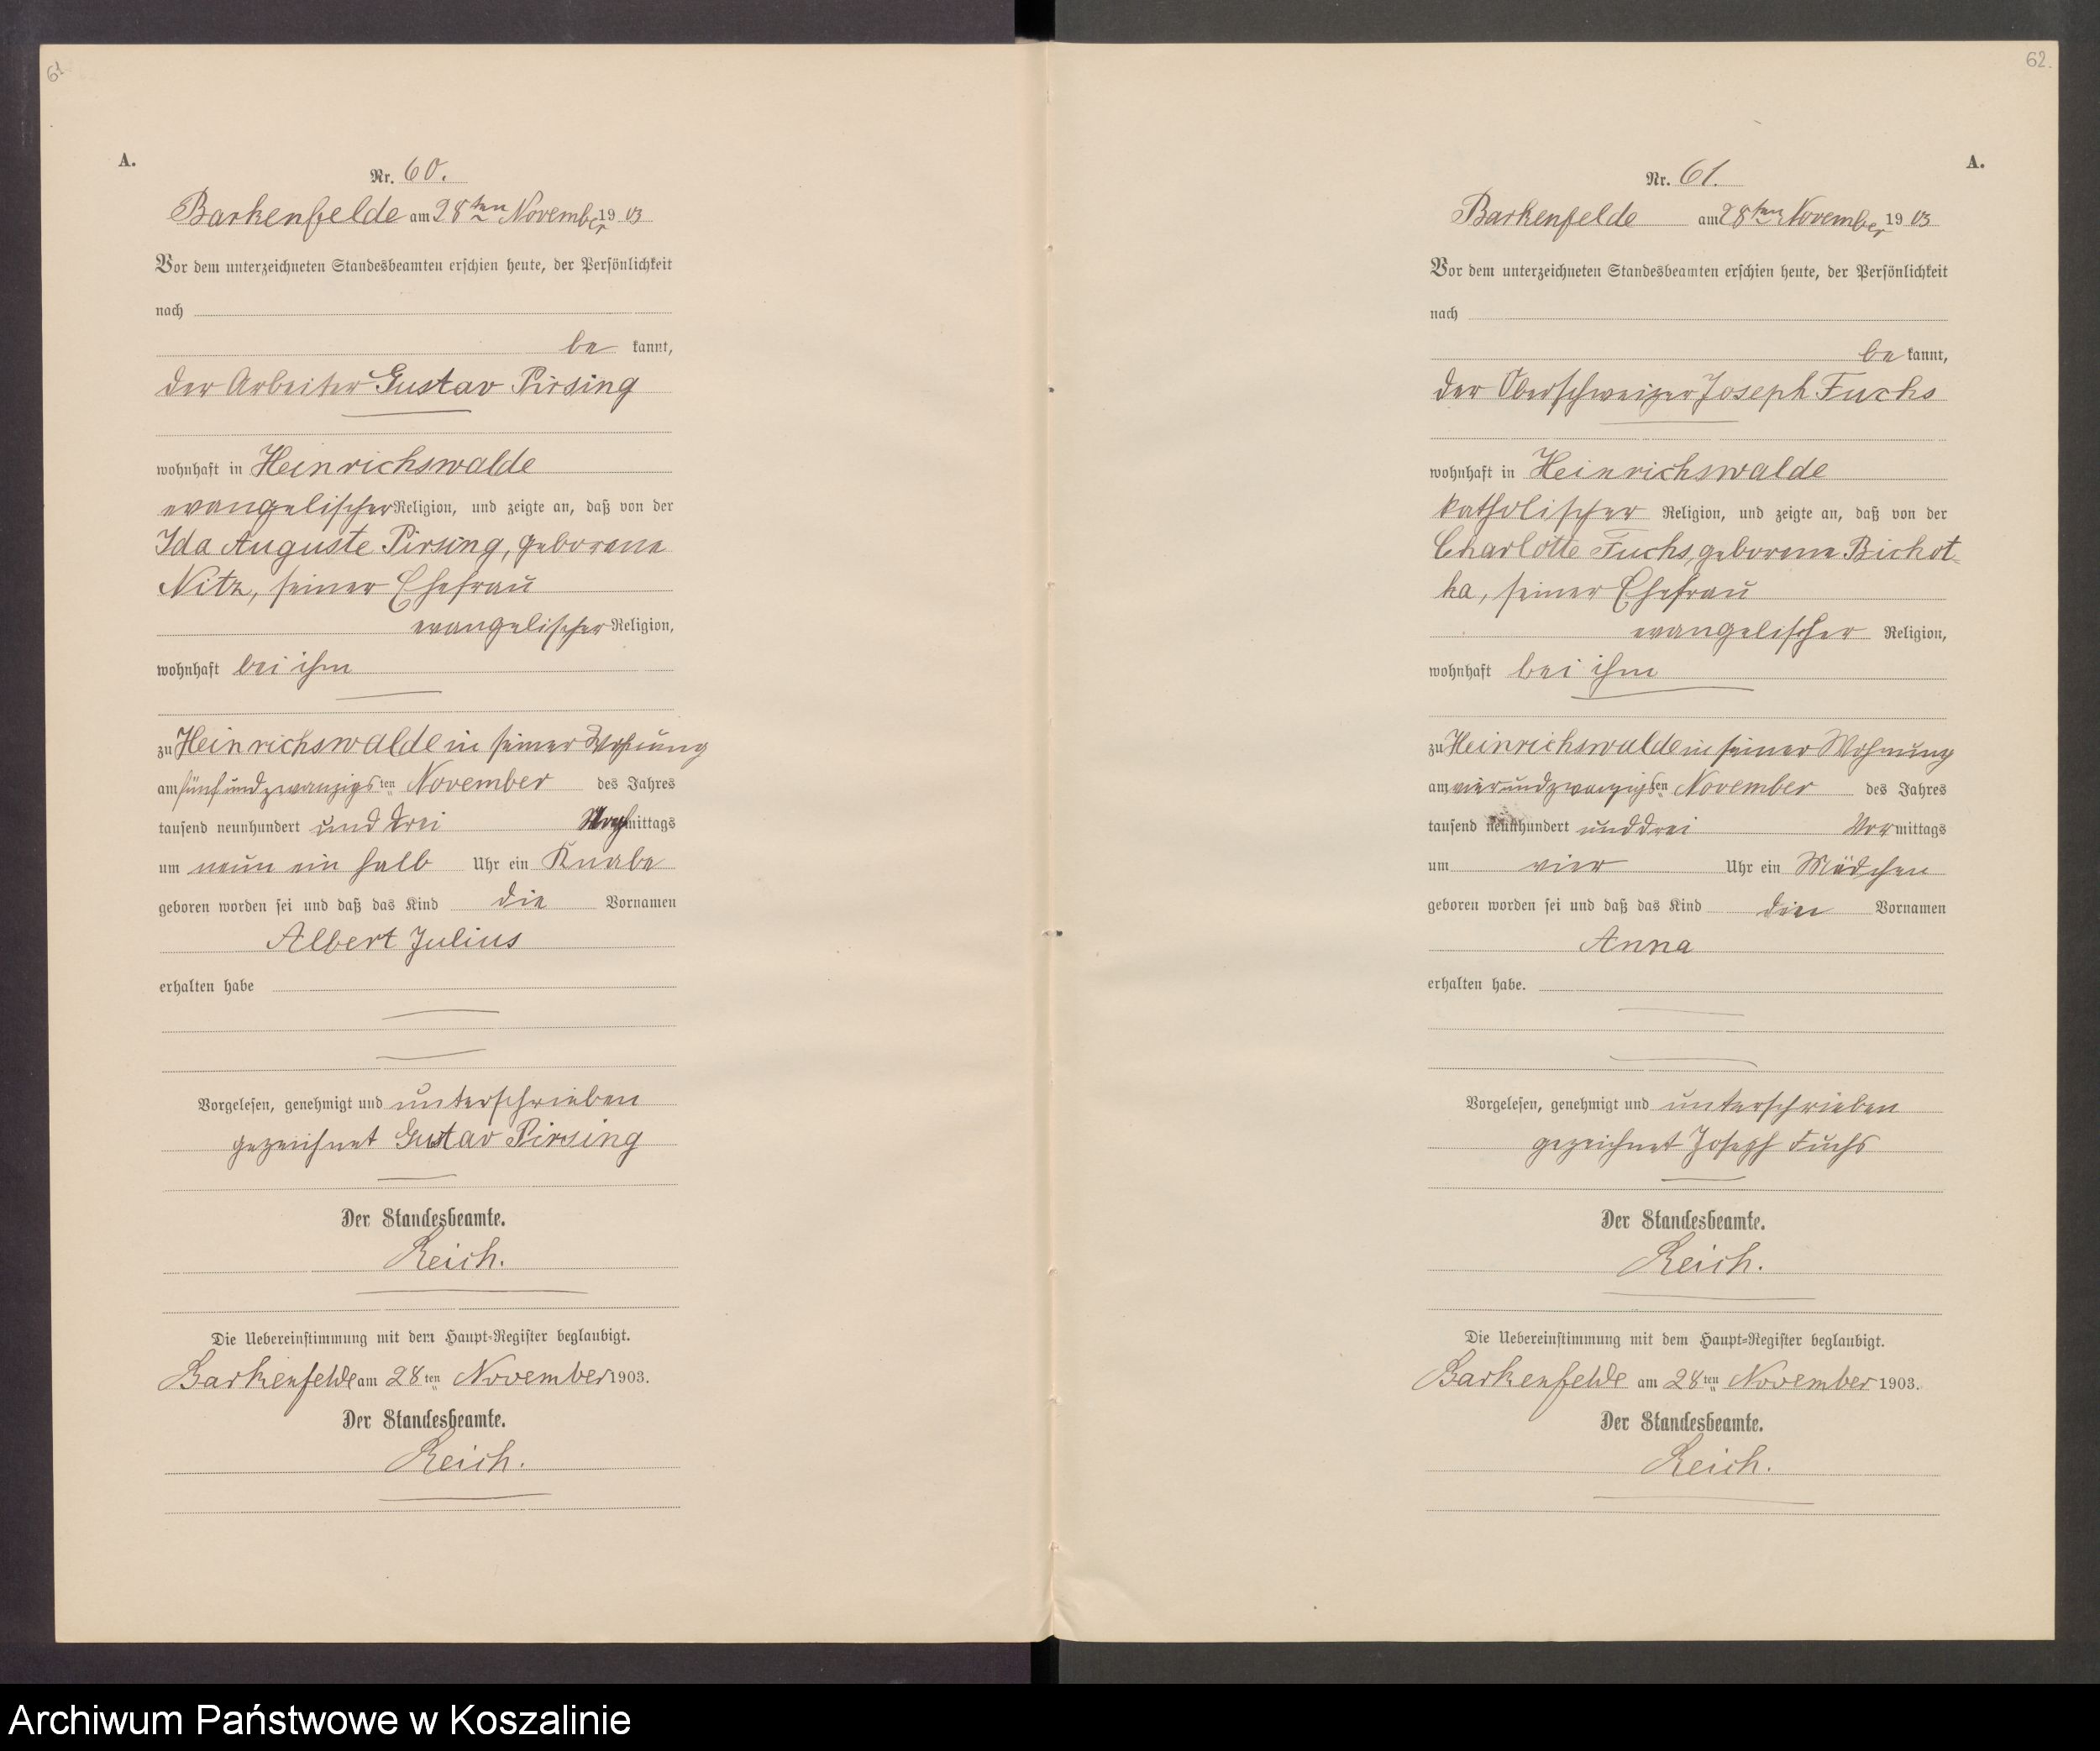 61
A.
Nr. 60.
Barkenfelde am 28ten November 1903
Vor dem unterzeichneten Standesbeamten erschien heute, der Persönlichkeit
nach
be kannt,
der Arbeiter Gustav Pirsing
wohnhaft in Heinrichswalde
evangelischer Religion, und zeigte an, daß von der
Ida Auguste Pirsing, geborene
Nitz, seiner Ehefrau
evangelischer Religion,
wohnhaft bei ihm
zu Heinrichswalde in seiner Wohnung
am fünfundzwanzigsten November des Jahres
tausend neunhundert und drei mittags
um neun ein halb Uhr ein Knabe
geboren worden sei und daß das Kind die Vornamen
Albert Julius
erhalten habe
Vorgelesen, genehmigt und unterschrieben
gezeichnet Gustav Pirsing
Der Standesbeamte.
Reich.
Die Uebereinstimmung mit dem Haupt-Register beglaubigt.
Barkenfelde am 28ten November 1903.
Der Standesbeamte.
Reich.
62.
A.
Nr. 61.
Barkenfelde am 28ten November 1903
Vor dem unterzeichneten Standesbeamten erschien heute, der Persönlichkeit
nach
be kannt,
der Oberschweizer Joseph Fuchs
wohnhaft in Heinrichswalde
katholischer Religion, und zeigte an, daß von der
Charlotte Fuchs, geborene Bichot-
ka, seiner Ehefrau
evangelischer Religion,
wohnhaft bei ihm
zu Heinrichswalde in seiner Wohnung
am vierundzwanzigsten November des Jahres
tausend neunhundert und drei Vormittags
um vier Uhr ein Mädchen
geboren worden sei und daß das Kind den Vornamen
Anna
erhalten habe.
Vorgelesen, genehmigt und unterschrieben
gezeichnet Joseph Fuchs
Der Standesbeamte.
Reich.
Die Uebereinstimmung mit dem Haupt-Register beglaubigt.
Barkenfelde am 28ten November 1903.
Der Standesbeamte.
Reich.
Archiwum Państwowe w Koszalinie